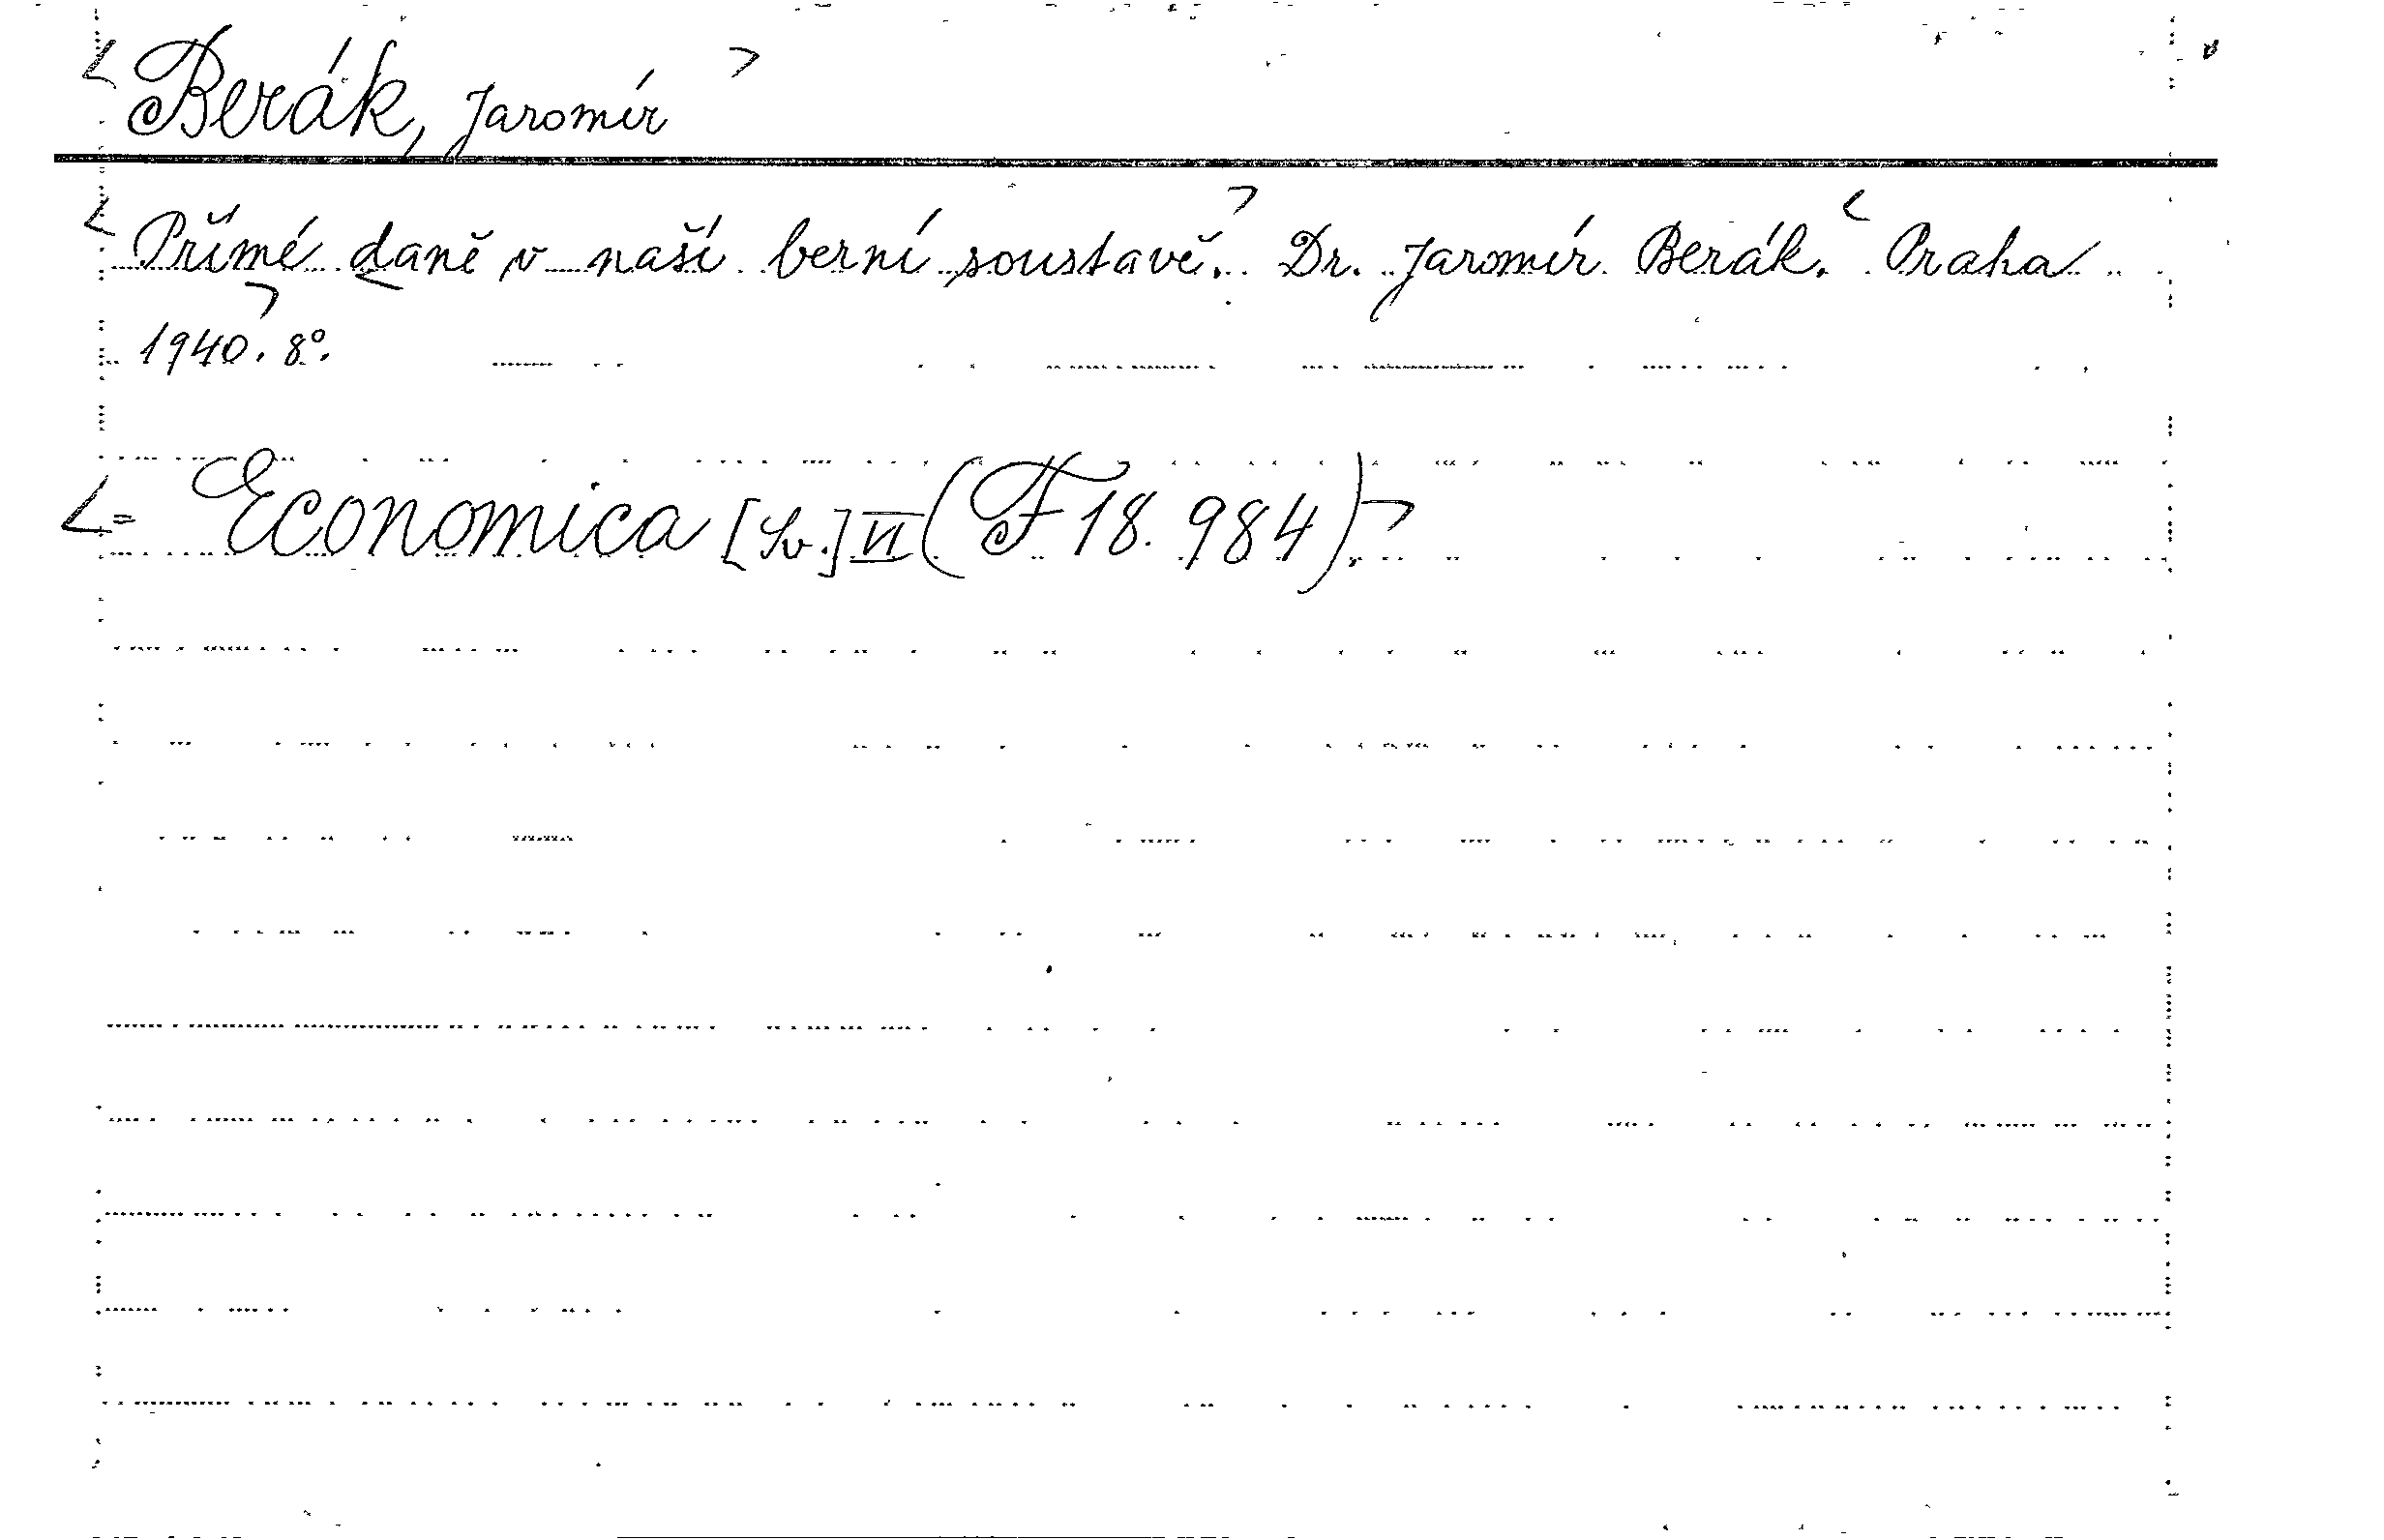 < Berák, Jaromír >
< Přímé daně v naší berní soustavě. > Dr. Jaromír Berák. < Praha
1940. > 8°.
<= Economica [Sv.] VI (F 18.984). >